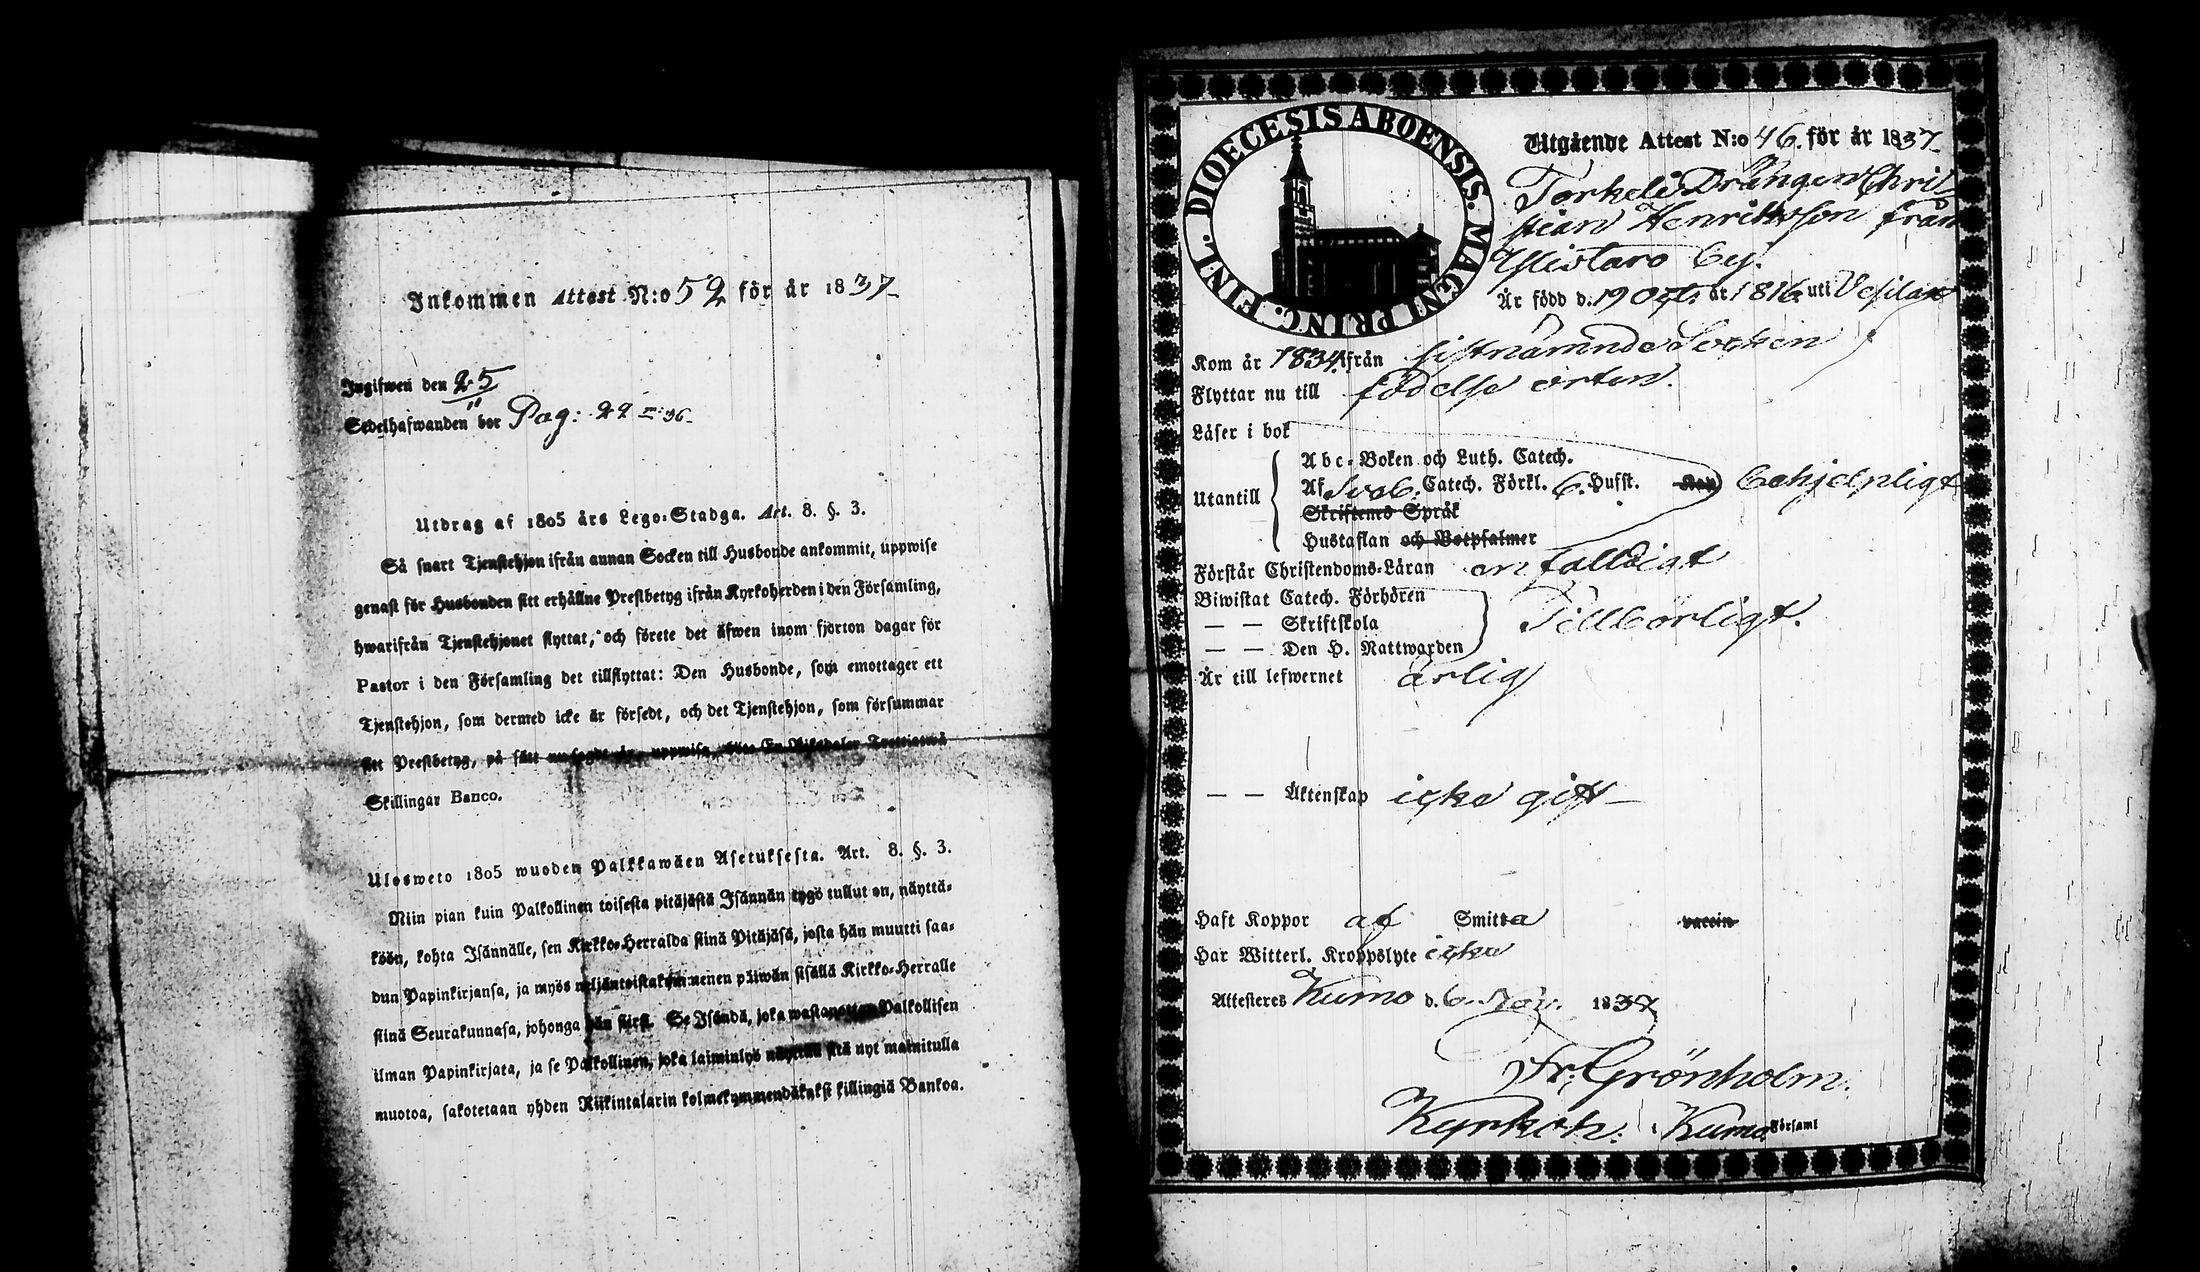 Inkommen Attest N:o 52 för år 1837
Ingifwen den 25
Sedelhafwanden bor Pag: 22 = 36
Utdrag af 1805 års Lego-Stadga. Art. 8. §. 3.
Så snart Tjenstehjon ifrån annan Socken till Husbonde ankommit, uppwise
genast för Husbonden sitt erhållne Prestbetyg ifrån Kyrkoherden i den Församling,
hwarifrån Tjenstehjonet flyttat, och förete det äfwen inom fjorton dagar för
Pastor i den Församling det tillflyttat: Den Husbonde, som emottager ett
Tjenstehjon, som dermed icke är försedt, och det Tjenstehjon, som försummar
sitt Prestbetyg, på sätt nu sagdt är, uppwisa, böte En Riksdaler Trettiotwå
Skillingar Banco.
Ulosweto 1805 wuoden Palkkawäen Asetuksesta. Art. 8. §. 3.
Niin pian kuin Palkollinen toisesta pitäjästä Isännän tygö tullut on, näyttä-
köön, kohta Isännälle, sen Kirkko-Herralda siinä Pitäjäsä, josta hän muutti saa-
dun Papinkirjansa, ja myös neljäntoistakymmenen päiwän sisällä Kirkko-Herralle
siinä Seurakunnasa, johonga hän siirsi. Se Isändä, joka wastanottaa Palkollisen
ilman Papinkirjata, ja se Palkollinen, joka laiminlyö näyttää sitä nyt mainitulla
muotoa, sakotetaan yhden Riikintalarin kolmekymmendäkaksi killingiä Bankoa.
DIOECESIS ABOENSIS. MAGNI PRINC. FINL.
Utgående Attest N:o 46. för år 1837
Torkels Drängen Chri
stian Henriksson från
Yllistaro by.
Är född d. 19 Oct. år 1816 uti Vesilax
Kom år 1834 ifrån sistnämnde Socken
Flyttar nu till födelse orten.
Läser i bok
Utantill
Abc-Boken och Luth. Catech.
Af Sveb. Catech. Förkl. 6. Hufst. behjelpligt
Skriftenes Språk
Hustaflan och Botpsalmer
Förstår Christendoms-Läran enfalldigt
Biwistat Catech. Förhören
— — Skriftskola Tillbörligt.
— — Den H. Nattwarden
Är till lefwernet ärlig
— — Äktenskap icke gift
Haft Koppor af Smitta vaccin
Har Witterl. Kroppslyte icke
Attesteres Kumo d. 6. Nov. 1837
Fr: Grönholm.
Kyrkoh. i Kumo Församl